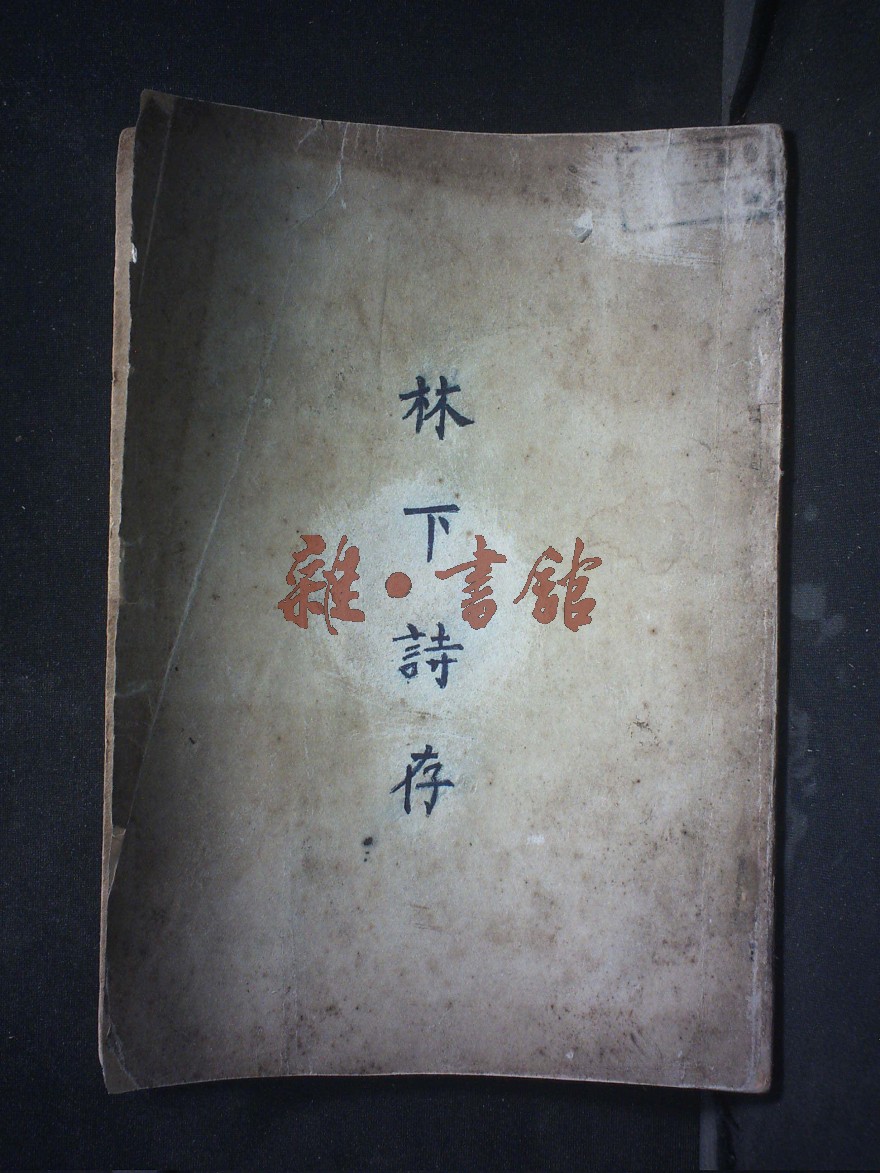 林下詩存
雜·書館